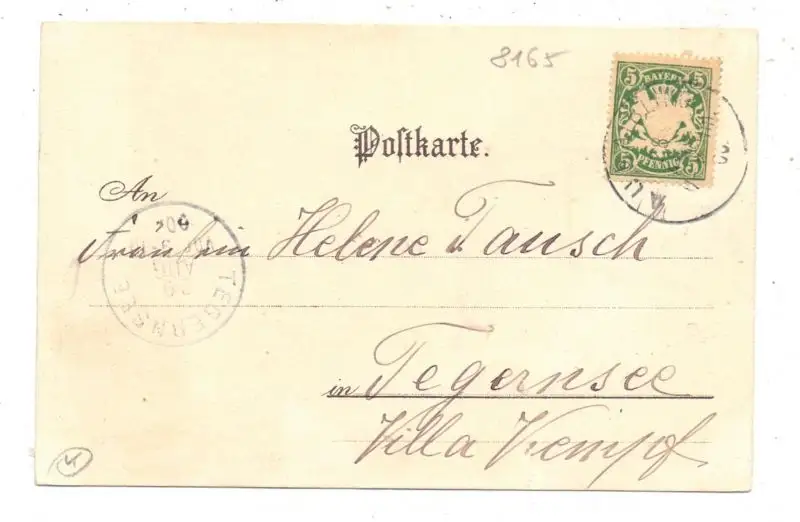 8165
5 BAYERN 5
5 PFENNIG 5
Postkarte.
An
Fräulein Helene Tausch
TEGERNSEE
in Tegernsee
Villa Kempf
4